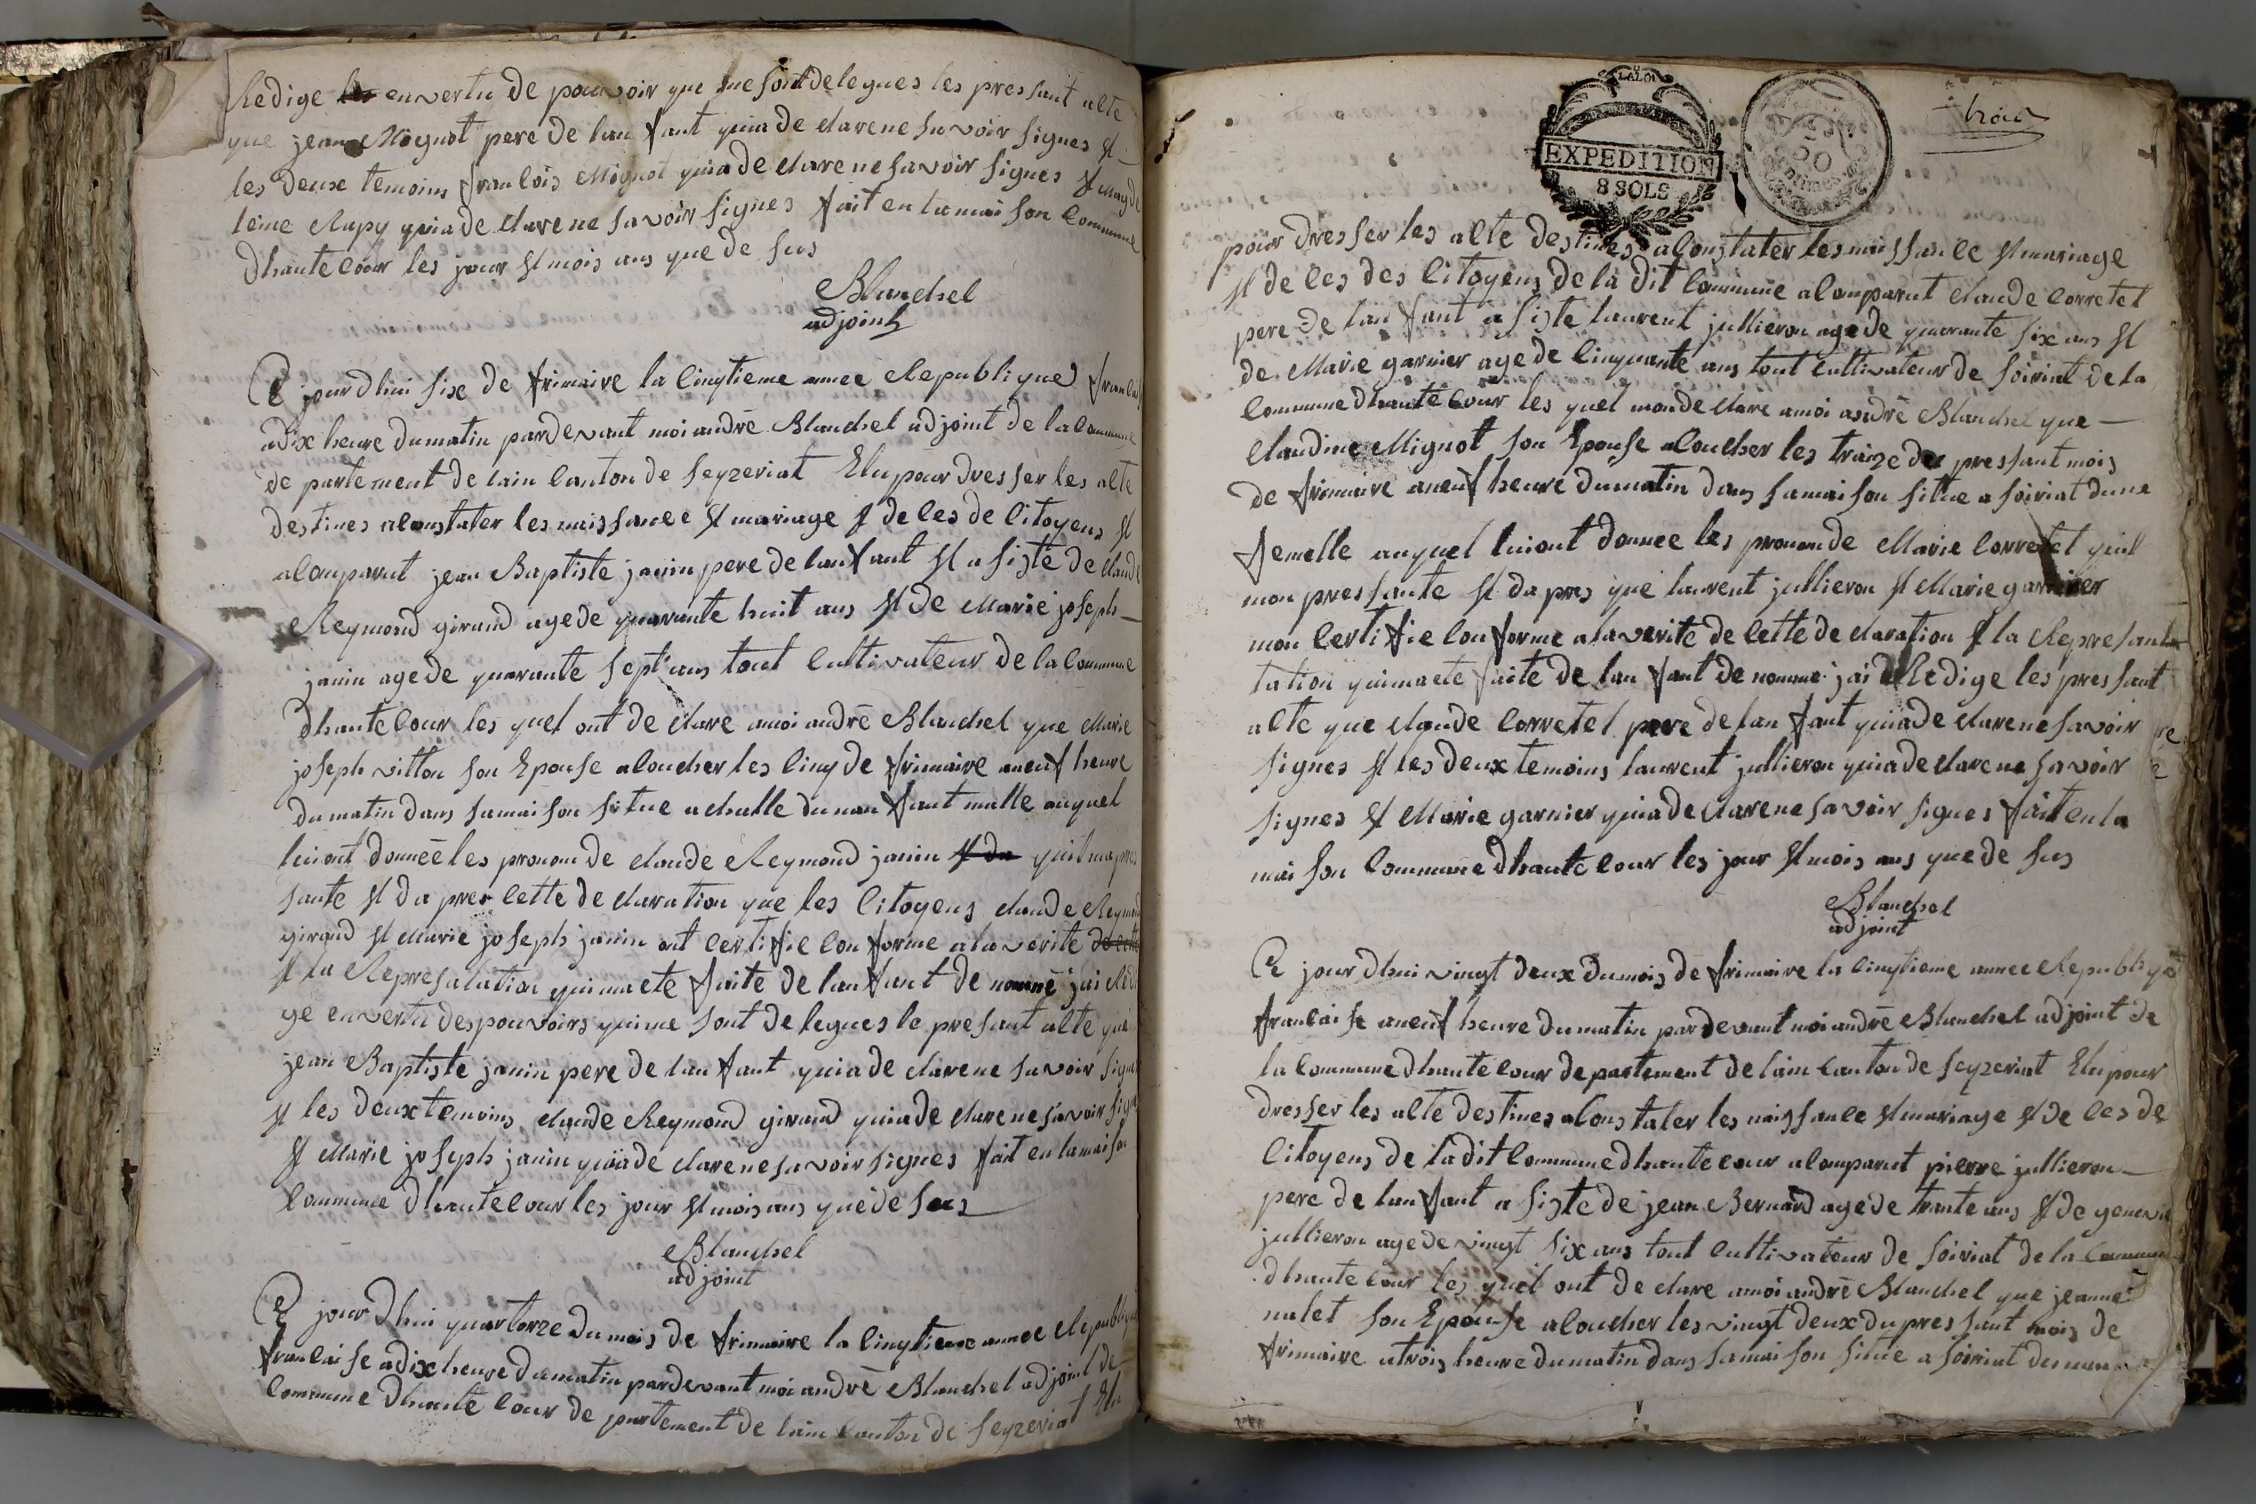 Redige les en vertu de pouvoir que me sont delegues les pressant alte
que jean Mognot pere de lan fant quia de clarene savoir signes et
les deux temoins francois Mignot quia de clarene savoir signes et Magde
leine Rupy quia de clarene savoir signes fait en lamaison Commune
dhautecour les jour et mois ans que de sus
Blanchel
adjoint
Ce jourdhui six de frimaire la Cinqtieme annee Republique francai
adix heure dumatin pardevant moi andrē Blanchel adjoint de la Commune
de partement de lain Canton de seyzeriat Elu pour dresser les alte
destines aconstater les naissance et mariage et de ces de Citoyens et
a Comparut jean Baptiste janin pere de lanfant et a siste de claude
Reymond giraud agede quarante huit ans et de Marie joseph
janin agede quarante sept ans tout Cultivateur de la Commune
dhautecour les quel ont de clare amoi andrē Blanchel que Marie
joseph vitton son Epouse a Coucher les Cinq de frimaire aneuf heure
dumatin dans samaison situe a challe dunan fant malle auquel
luiont donneē les pronom de claude Reymond janin et da quil mapres
sante et da pres cette de claration que les Citoyens claude Reymond
giraud et Marie joseph janin ont Certifie Con forme ala verite de cette
et la Represalation qui ma ete faite de lan fant de nommē jai Redi
ge en vertu des pouvoirs qui me sont delegues le presant alte que
jean Baptiste janin pere de lan fant quia de clarene savoir signes
et les deux temoins claude Reymond giraud quia de clarene savoir signe
et Marie joseph janin quia de clarene savoir signes fait en lamaison
Commune dhautecour les jour et mois ans que de sus
Blanchel
adjoint
Ce jourdhui quartorze du mois de frimaire la Cinqtieme annee Republique
francaise adix heure dumatin pardevant moi andrē Blanchel adjoint de
Commune dhaute Cour de partement de lain Canton de seyzeriat Elu
LALOI
EXPEDITION
8 SOLS
50
Centimes
pour dresser les alte destines aconstater les naissance et mariage
et de ces des Citoyens de la dit Commune a Comparut claude Corretel
pere de lan fant a siste laurent jullieron agede quarante six ans et
de Marie garnier agede Cinquante ans tout Cultivateur de soiriat de la
Commune dhaute Cour les quel monde clare amoi andrē Blanchel que
claudine Mignot son Epouse a Coucher les traize du pressant mois
de frimaire aneuf heure dumatin dans samaison situe a soiriat dune
femelle auquel luiont donnee les pronom de Marie Corretel quil
mon pressante et da pres que laurent jullieron et Marie garnier
mon Certifie Conforme ala verite de cette de claration et la Represanta
tation quimaete faite de lan fant de nomme jai Redige les pressant
alte que claude Corretel pere de lan fant quia de clarene savoir
signes et les deux temoins laurent jullieron quia de clarene savoir
signes et Marie garnier quia de clarene savoir signes fait en la
maison Commune dhaute cour les jour et mois ans que de sus
Blanchel
adjoint
Ce jourdhui vingt deux du mois de frimaire la Cinqtieme annee Republique
francaise aneuf heure dumatin pardevant moi andrē Blanchel adjoint de
la Commune dhautecour de partement de lain Canton de seyzeriat Elu pour
dresser les alte destines aConstater les naissance et mariage et de ces de
Citoyens de ladit Commune dhautecour a Comparut pierre jullieron
pere de lan fant a siste de jean Bernard agede trante ans et de genevie
jullieron agede vingt six ans tout Cultivateur de soiriat de la Commune
dhaute Cour les quel ont de clare amoi andrē Blanchel que jeanne
nalet son Epouse a Coucher les vingt deux du pressant mois de
frimaire atrois heure dumatin dans samaison situe a soiriat dunan